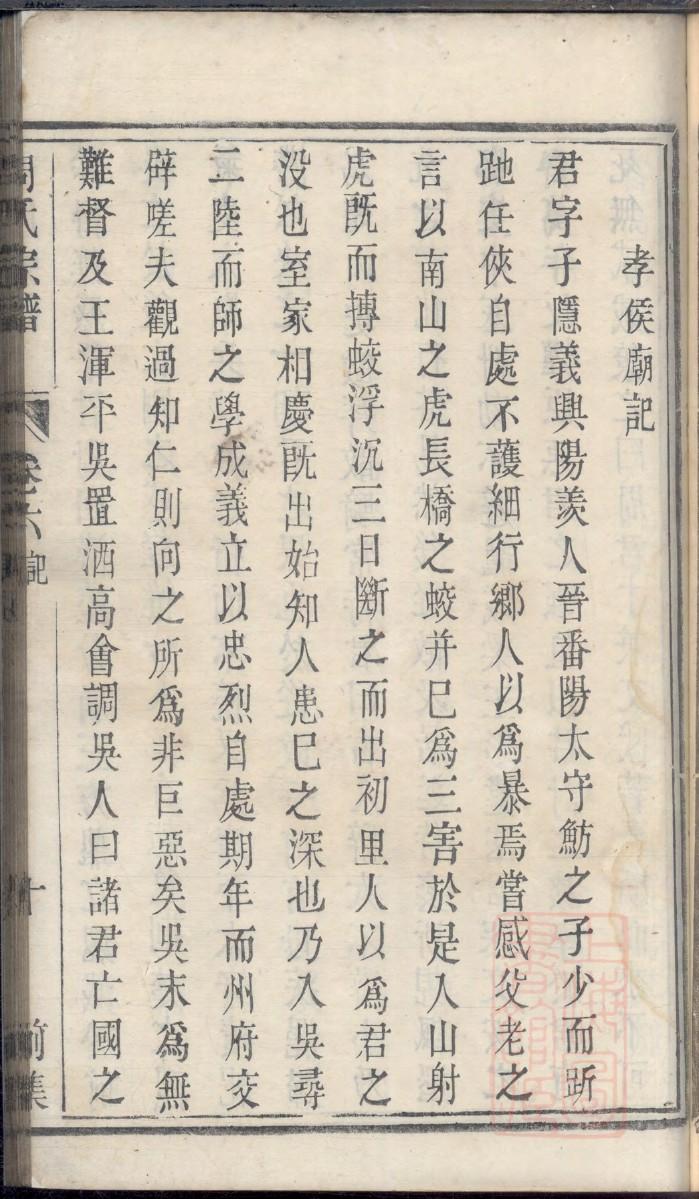 孝侯廟記
君字子隱義興陽羨人晉番陽太守魴之子少而斨
跅任俠自處不護細行鄉人以爲暴焉嘗感父老之
言以南山之虎長橋之蛟并已爲三害於是入山射
虎既而摶蛟浮沉三日斷之而出初里人以爲君之
没也室家相慶既出始知人患已之深也乃入吳尋
二陸而師之學成義立以忠烈自處期年而州府交
辟嗟夫觀過知仁則向之所爲非巨惡矣吳末爲無
難督及王渾平吳置酒高會謂吳人曰諸君亡國之
周氏宗譜
卷六 記
十
前集